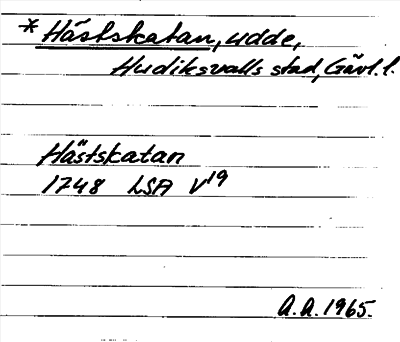 * Hästskatan, udde,
Hudiksvalls stad, Gävl. l.
Hästskatan
1748 LSA V19
A.A. 1965.